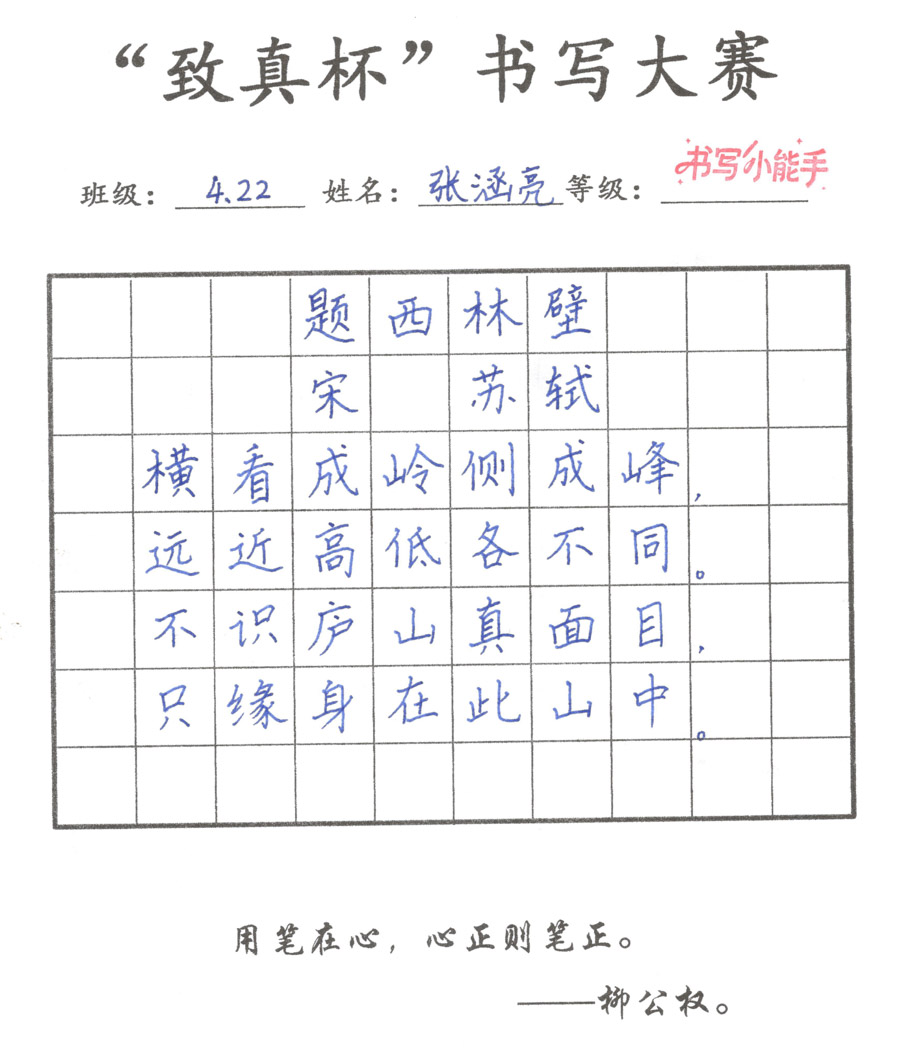 “致真杯”书写大赛
书写小能手
班级：4.22 姓名：张涵亮 等级：
题西林壁
宋 苏轼
横看成岭侧成峰，
远近高低各不同。
不识庐山真面目，
只缘身在此山中。
用笔在心，心正则笔正。
——柳公权。